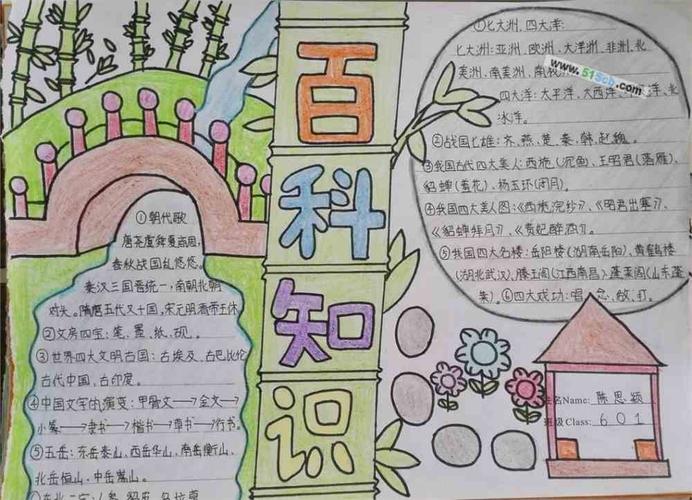 百
科
知
识
①朝代歌
唐尧虞舜夏商周,
春秋战国乱悠悠。
秦汉三国晋统一,南朝北朝
对头。隋唐五代又十国,宋元明清帝王休
②文房四宝:笔、墨、纸、砚。
③世界四大文明古国:古埃及、古巴比伦
古代中国、古印度。
④中国文字的演变:甲骨文→金文→
小篆→隶书→楷书→草书→行书。
⑤五岳:东岳泰山、西岳华山、南岳衡山、
北岳恒山、中岳嵩山。
东北三宝:人参、貂皮、乌拉草
①七大洲、四大洋:
七大洲:亚洲、欧洲、大洋洲、非洲、北
美洲、南美洲、南极洲
www.515cb.com
四大洋:太平洋、大西洋、洋、北
冰洋。
②战国七雄:齐、燕、楚、秦、韩、赵、魏。
③我国古代四大美人:西施(沉鱼)、王昭君(落雁)、
貂蝉(羞花)、杨玉环(闭月)。
④我国四大美人图:《西施浣纱》、《昭君出塞》、
《貂蝉拜月》、《贵妃醉酒》。
⑤我国四大名楼:岳阳楼(湖南岳阳)、黄鹤楼
(湖北武汉)、滕王阁(江西南昌)、蓬莱阁(山东蓬
莱)。⑥四大戏功:唱、念、做、打。
姓名Name: 陈思颖
班级Class: 601